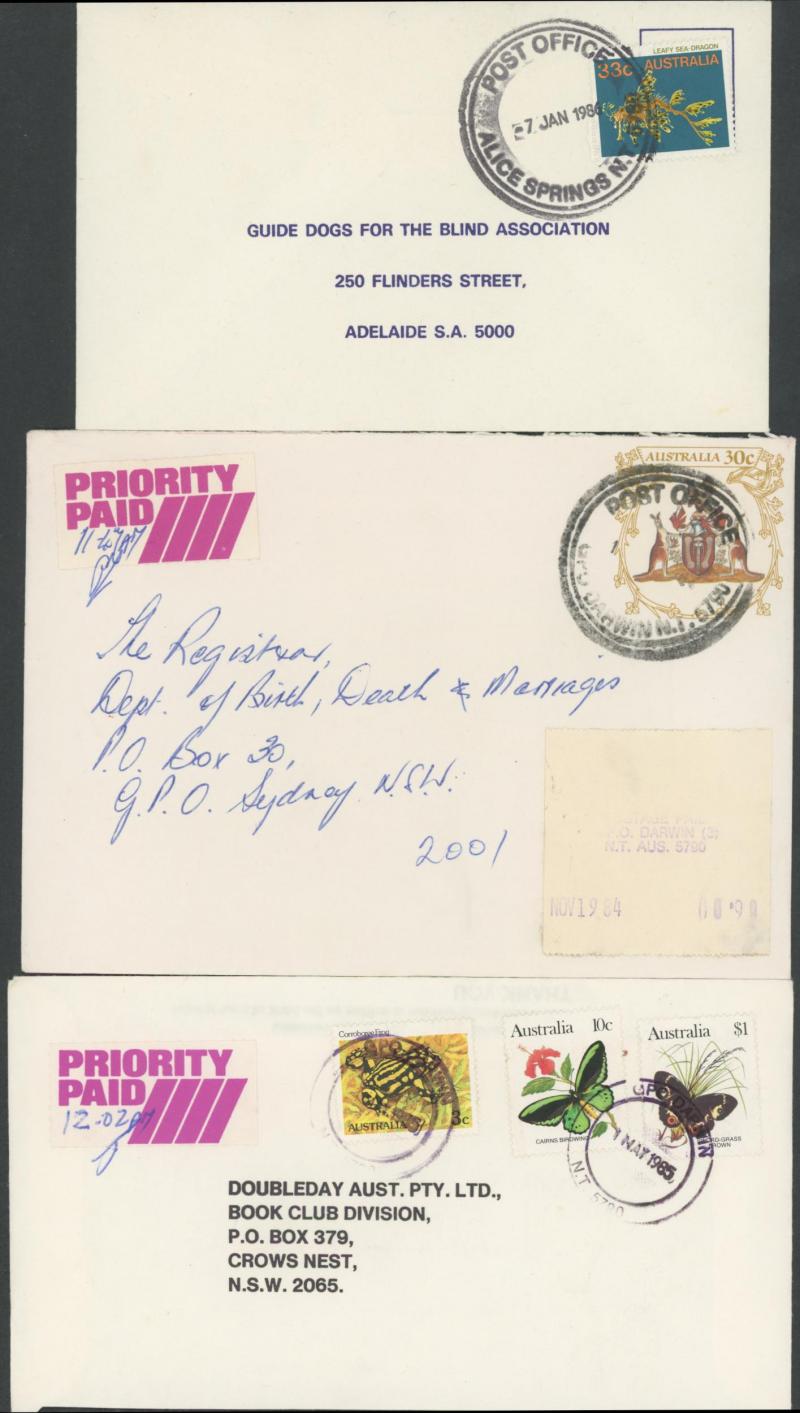 POST OFFICE
7 JAN 1986
ALICE SPRINGS N.T.
LEAFY SEA-DRAGON
33c AUSTRALIA
GUIDE DOGS FOR THE BLIND ASSOCIATION
250 FLINDERS STREET,
ADELAIDE S.A. 5000
PRIORITY
PAID
AUSTRALIA 30c
POST OFFICE
GPO DARWIN N.T. 5790
The Registrar,
Dept. of Birth, Death & Marriages
P.O. Box 30,
G.P.O. Sydney N.S.W.
2001
POSTAGE PAID
G.P.O. DARWIN (3)
N.T. AUS. 5790
NOV 19 84
00.90
THANK YOU
PRIORITY
PAID
12.02PM
Corroboree Frog
AUSTRALIA 3c
GPO
Australia 10c
CAIRNS BIRDWING
Australia $1
GPO DARWIN
1 MAY 1985
N.T 5790
DOUBLEDAY AUST. PTY. LTD.,
BOOK CLUB DIVISION,
P.O. BOX 379,
CROWS NEST,
N.S.W. 2065.